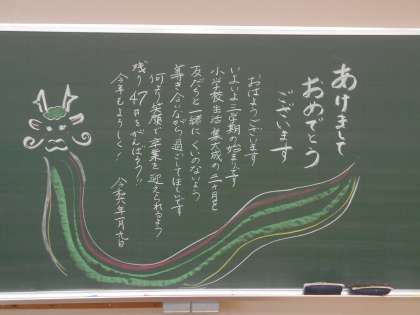 あけまして
おめでとう
ございます
おはようございます
いよいよ三学期の始まりです
小学校生活集大成の三ヶ月を
友だちと一緒にくいのないよう
尊き合いながら過ごしてほしいです
何より笑顔で卒業を迎えられるよう
残り47日をがんばろう!!
今年もよろしく! 令和六年一月九日